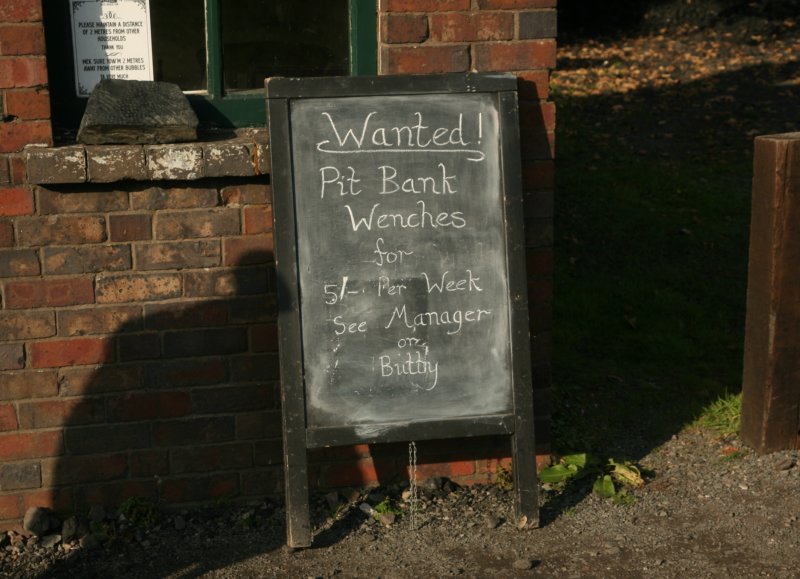 PLEASE MAINTAIN A DISTANCE
OF 2 METRES FROM OTHER
HOUSEHOLDS
THANK YOU
MEK SURE YOW'M 2 METRES
AWAY FROM OTHER BUBBLES
TA VERY MUCH
Wanted!
Pit Bank
Wenches
for
5/- Per Week
See Manager
or
Butty